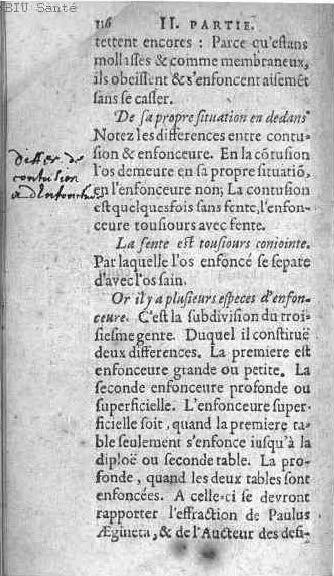 BIU Santé
116 II. PARTIE.
tettent encores : Parce qu'estans
mollasses & comme membraneux,
ils obeissent & s'enfoncent aisemẽt
sans se casser.
De sa propre situation en dedans
Notez les differences entre contu-
sion & enfonceure. En la cõtusion
l'os demeure en sa propre situatiõ,
en l'enfonceure non; La contusion
est quelquesfois sans fente, l'enfon-
ceure tousiours avec fente.
La fente est tousiours coniointe.
Par laquelle l'os enfoncé se separe
d'avec l'os sain.
Or il y a plusieurs especes d'enfon-
ceure. C'est la subdivision du troi-
siesme genre. Duquel il constituë
deux differences. La premiere est
enfonceure grande ou petite. La
seconde enfonceure profonde ou
superficielle. L'enfonceure super-
ficielle soit, quand la premiere ta-
ble seulement s'enfonce iusqu'à la
diploë ou seconde table. La pro-
fonde, quand les deux tables sont
enfoncées. A celle-ci se devront
rapporter l'effraction de Paulus
Ægineta, & de l'Aucteur des defi-
differ de
contusion